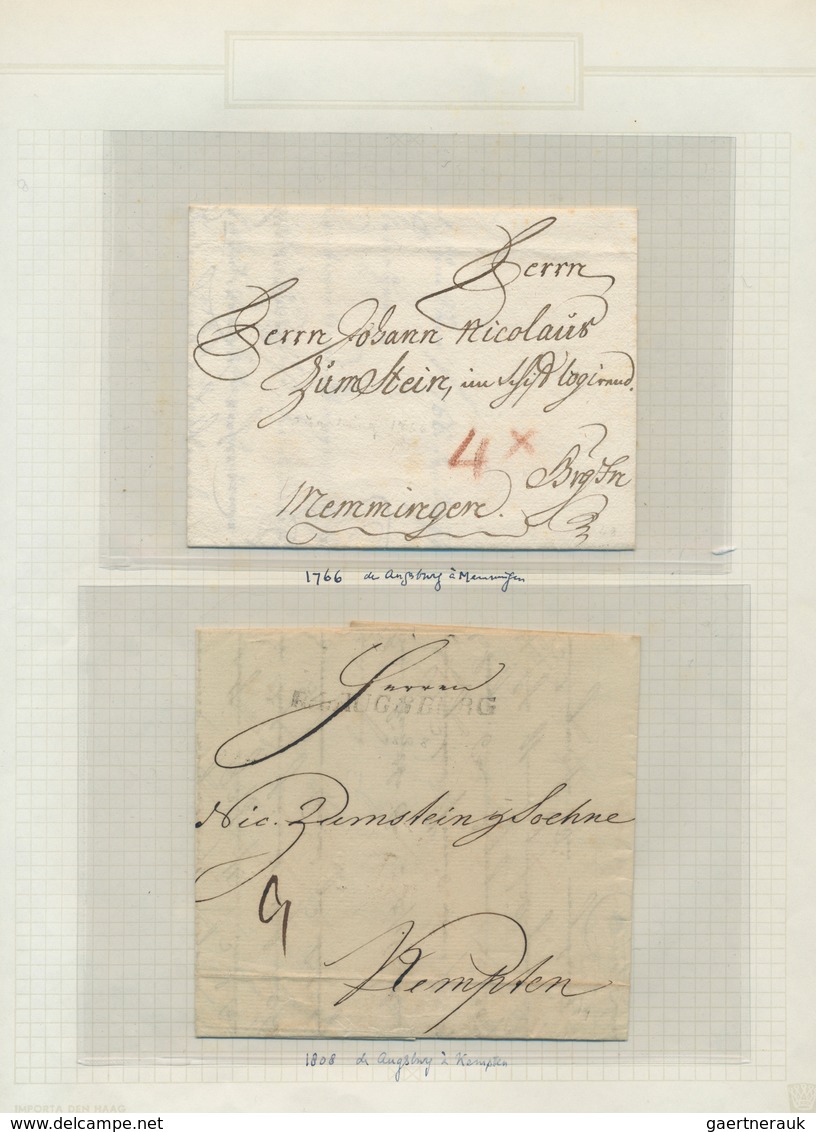 Herrn
Herrn Johann Nicolaus
ZumStein, im Schiff logirend.
4 x
Memmingen.
1766 de Augsburg à Memmingen
Herren
R.4.AUGSBURG
Nic. Zumstein y Soehne
Kempten
1808 de Augsburg à Kempten
IMPORTA DEN HAAG
www.delcampe.net
gaertnerauk